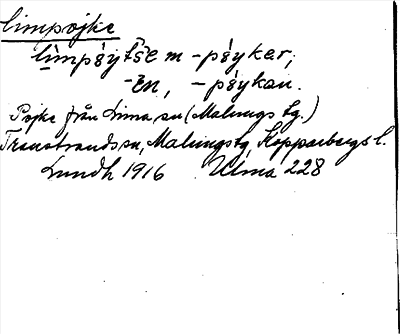 limpojke
límpȣ̀jtše m -pȣ̀yker,
-en, -pȣ̀ykan.
Pojke från Lima sn (Malungs tg.)
Transtrands sn, Malungs tg, Kopparbergs l.
Lundh 1916 Ulma 228